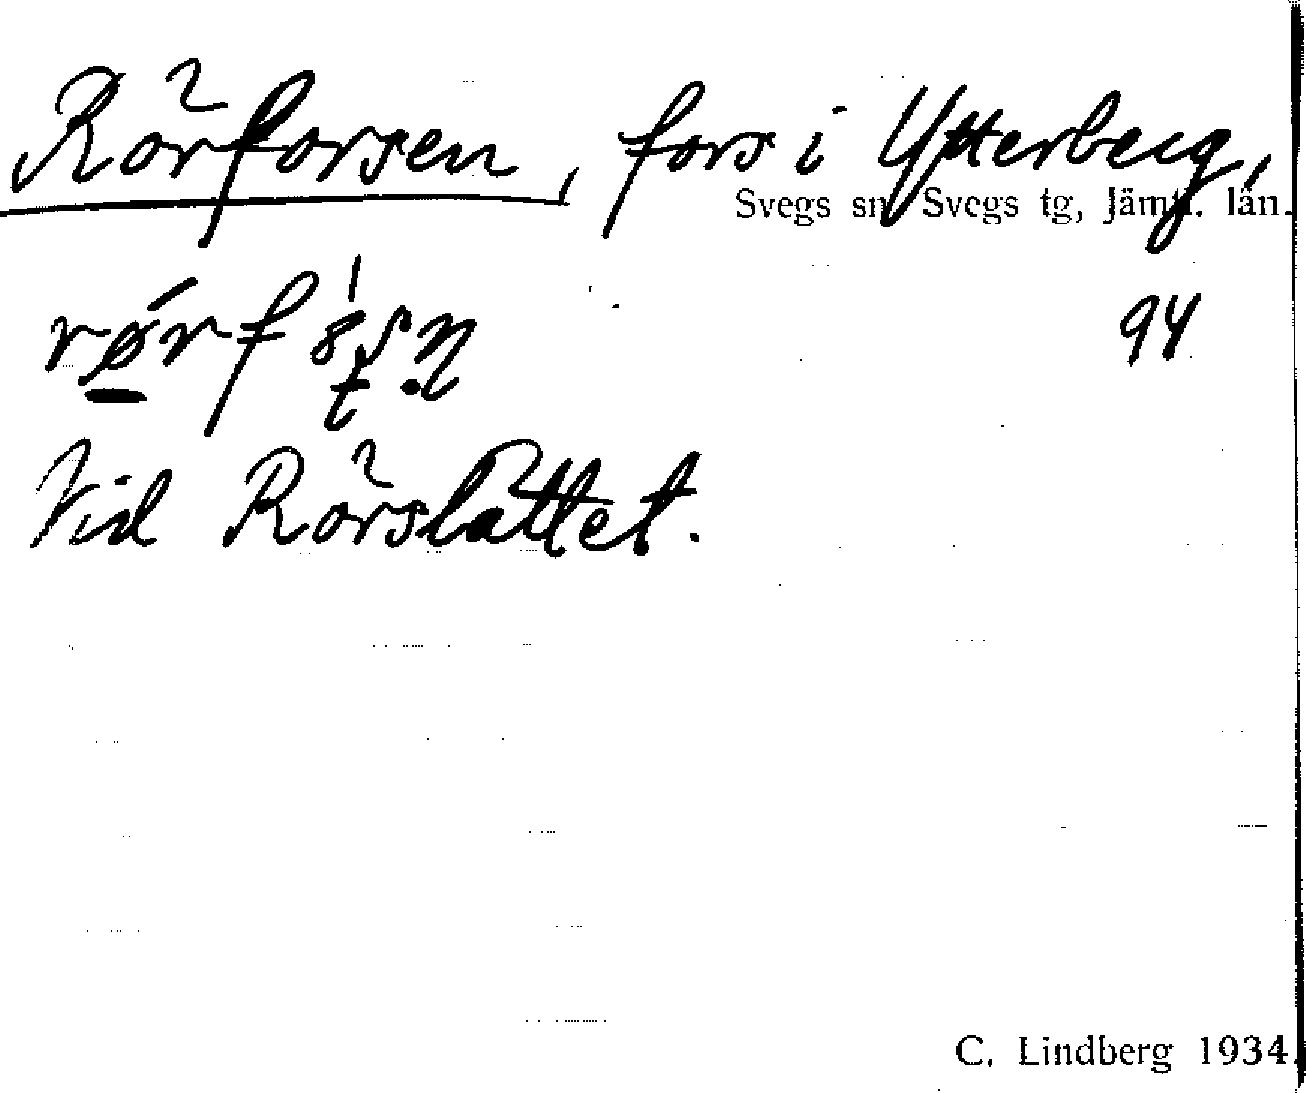 Rörforsen, fors i Ytterberg,
Svegs sn, Svegs tg, Jämtl. län.
94
Vid Rörslåttet.
C. Lindberg 1934.